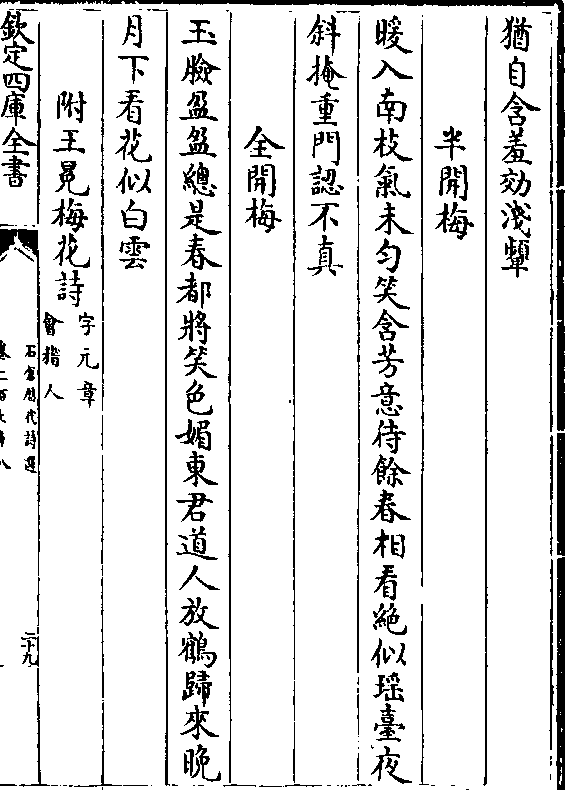 猶自含羞効淺顰
半開梅
暖入南枝氣未匀笑含芳意待餘春相看絶似瑶臺夜
斜掩重門認不真
全開梅
玉臉盈盈總是春都將笑色媚東君道人放鶴歸來晚
月下看花似白雲
附王冕梅花詩字元章會稽人
欽定四庫全書
石倉歴代詩選
卷二百
二十九